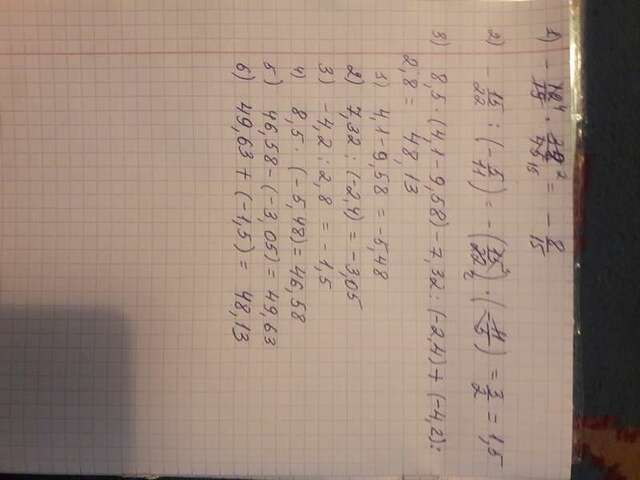 2) - 15/22 : (- 5/11) = - (15³/22₂) · (- 11/5) = 3/2 = 1,5
3) 8,5 · (4,1 - 9,58) - 7,32 : (-2,4) + (-4,2) :
2,8 = 48,13
1) 4,1 - 9,58 = -5,48
2) 7,32 : (-2,4) = -3,05
3) -4,2 : 2,8 = -1,5
4) 8,5 · (-5,48) = 46,58
5) 46,58 - (-3,05) = 49,63
6) 49,63 + (-1,5) = 48,13